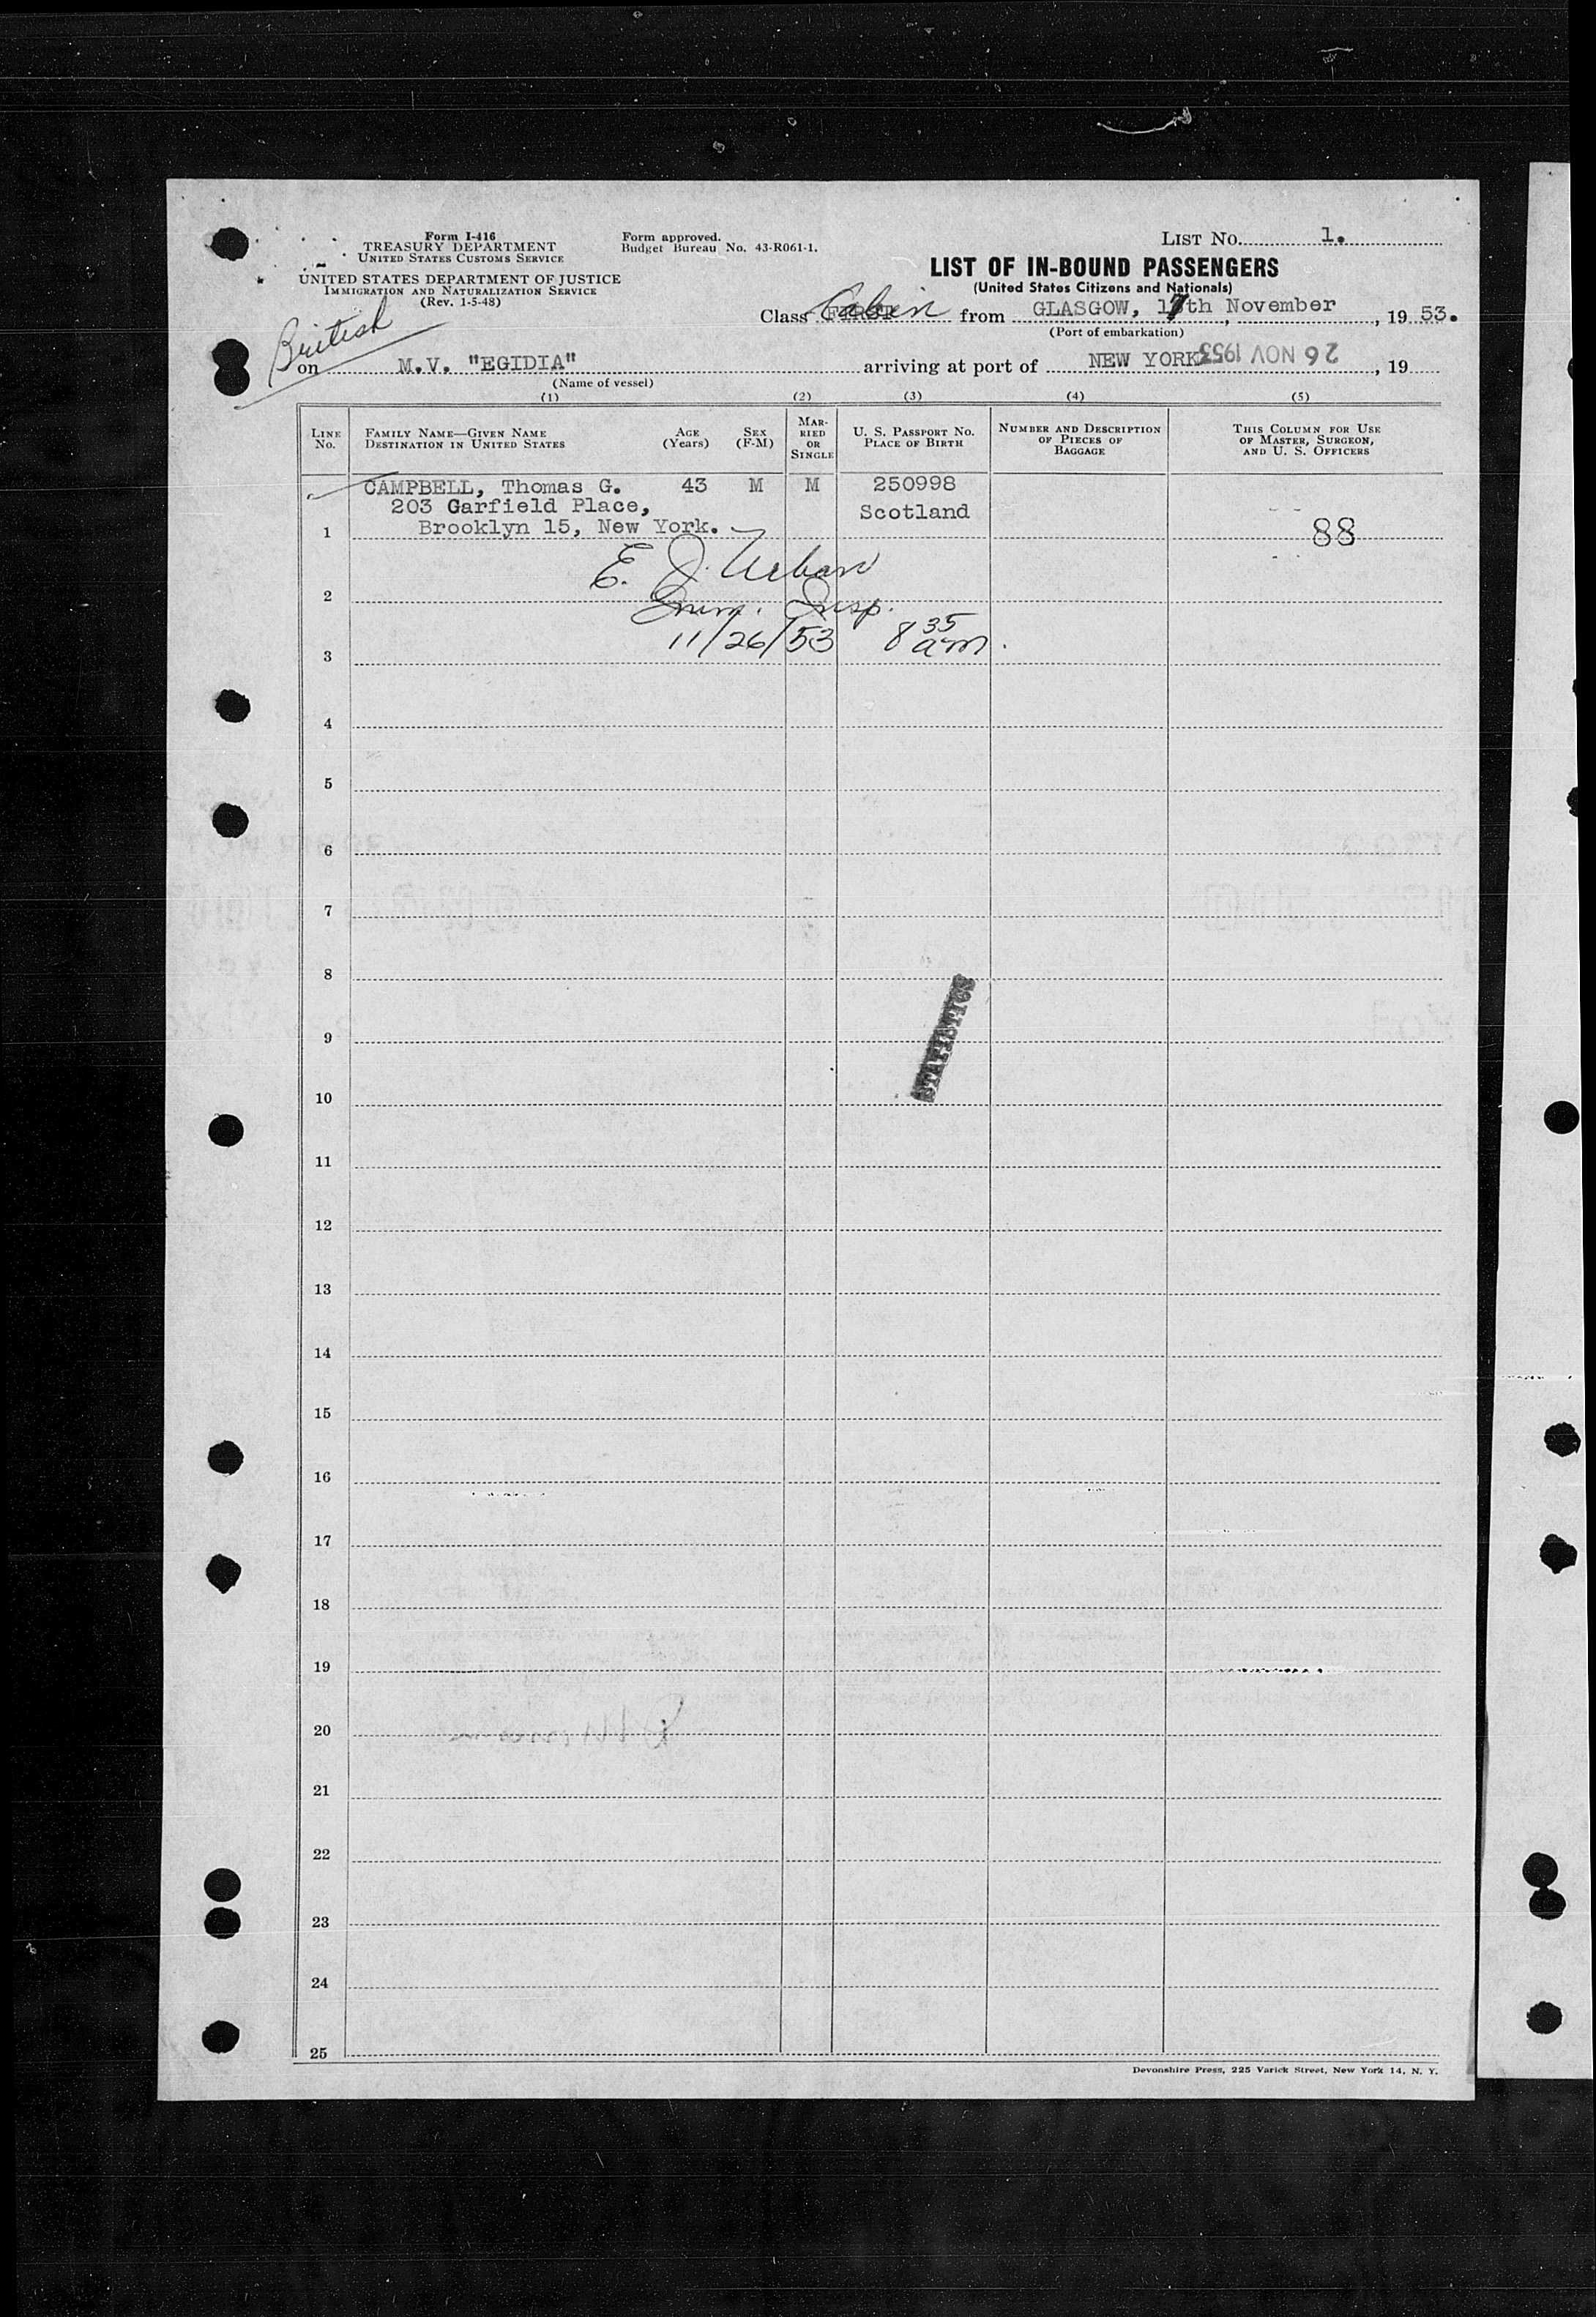 Form I-416
TREASURY DEPARTMENT
UNITED STATES CUSTOMS SERVICE
UNITED STATES DEPARTMENT OF JUSTICE
IMMIGRATION AND NATURALIZATION SERVICE
(Rev. 1-5-48)
Form approved.
Budget Bureau No. 43-R061-1.
LIST NO. 1.
LIST OF IN-BOUND PASSENGERS
(United States Citizens and Nationals)
Class FIRST Cabin from GLASGOW, 17th November, 1953.
(Port of embarkation)
British
on M.V. "EGIDIA" arriving at port of NEW YORK 26 NOV 1953, 19
(Name of vessel)
(1) (2) (3) (4) (5)
LINE No.
FAMILY NAME—GIVEN NAME
DESTINATION IN UNITED STATES
AGE
(Years)
SEX
(F-M)
MAR-
RIED
OR
SINGLE
U. S. PASSPORT NO.
PLACE OF BIRTH
NUMBER AND DESCRIPTION
OF PIECES OF
BAGGAGE
THIS COLUMN FOR USE
OF MASTER, SURGEON,
AND U. S. OFFICERS
CAMPBELL, Thomas G. 43 M M 250998
203 Garfield Place, Scotland
1 Brooklyn 15, New York. 88
E. J. Urban
2 Imm. Insp.
3 11/26/53 8 35 am.
4
5
6
7
8
STATISTICS
9
10
11
12
13
14
15
16
17
18
19
20
21
22
23
24
25
Devonshire Press, 225 Varick Street, New York 14, N. Y.